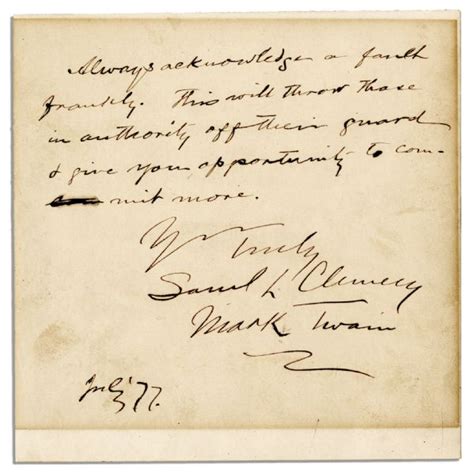 Always acknowledge a fault
frankly. This will throw those
in authority off their guard
& give you opportunity to com-
mit more.
Yrs Truly
Saml L. Clemens
Mark Twain
77.